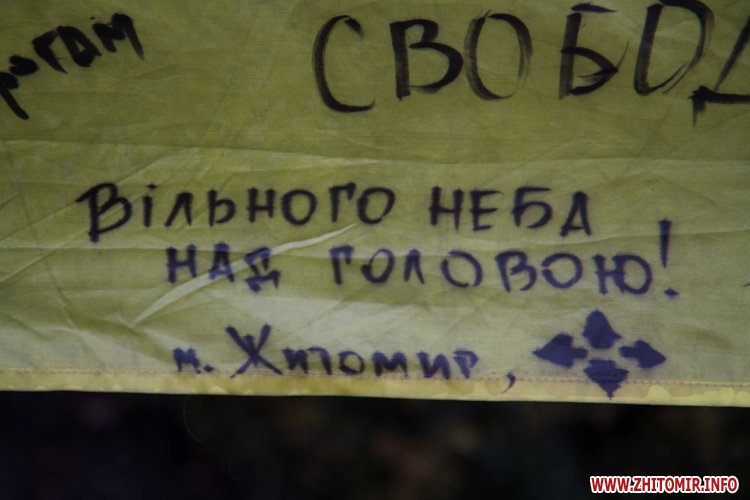 СВОБОД
Вільного НЕБА
НАД ГОЛОВОЮ!
м. Житомир,
WWW.ZHITOMIR.INFO